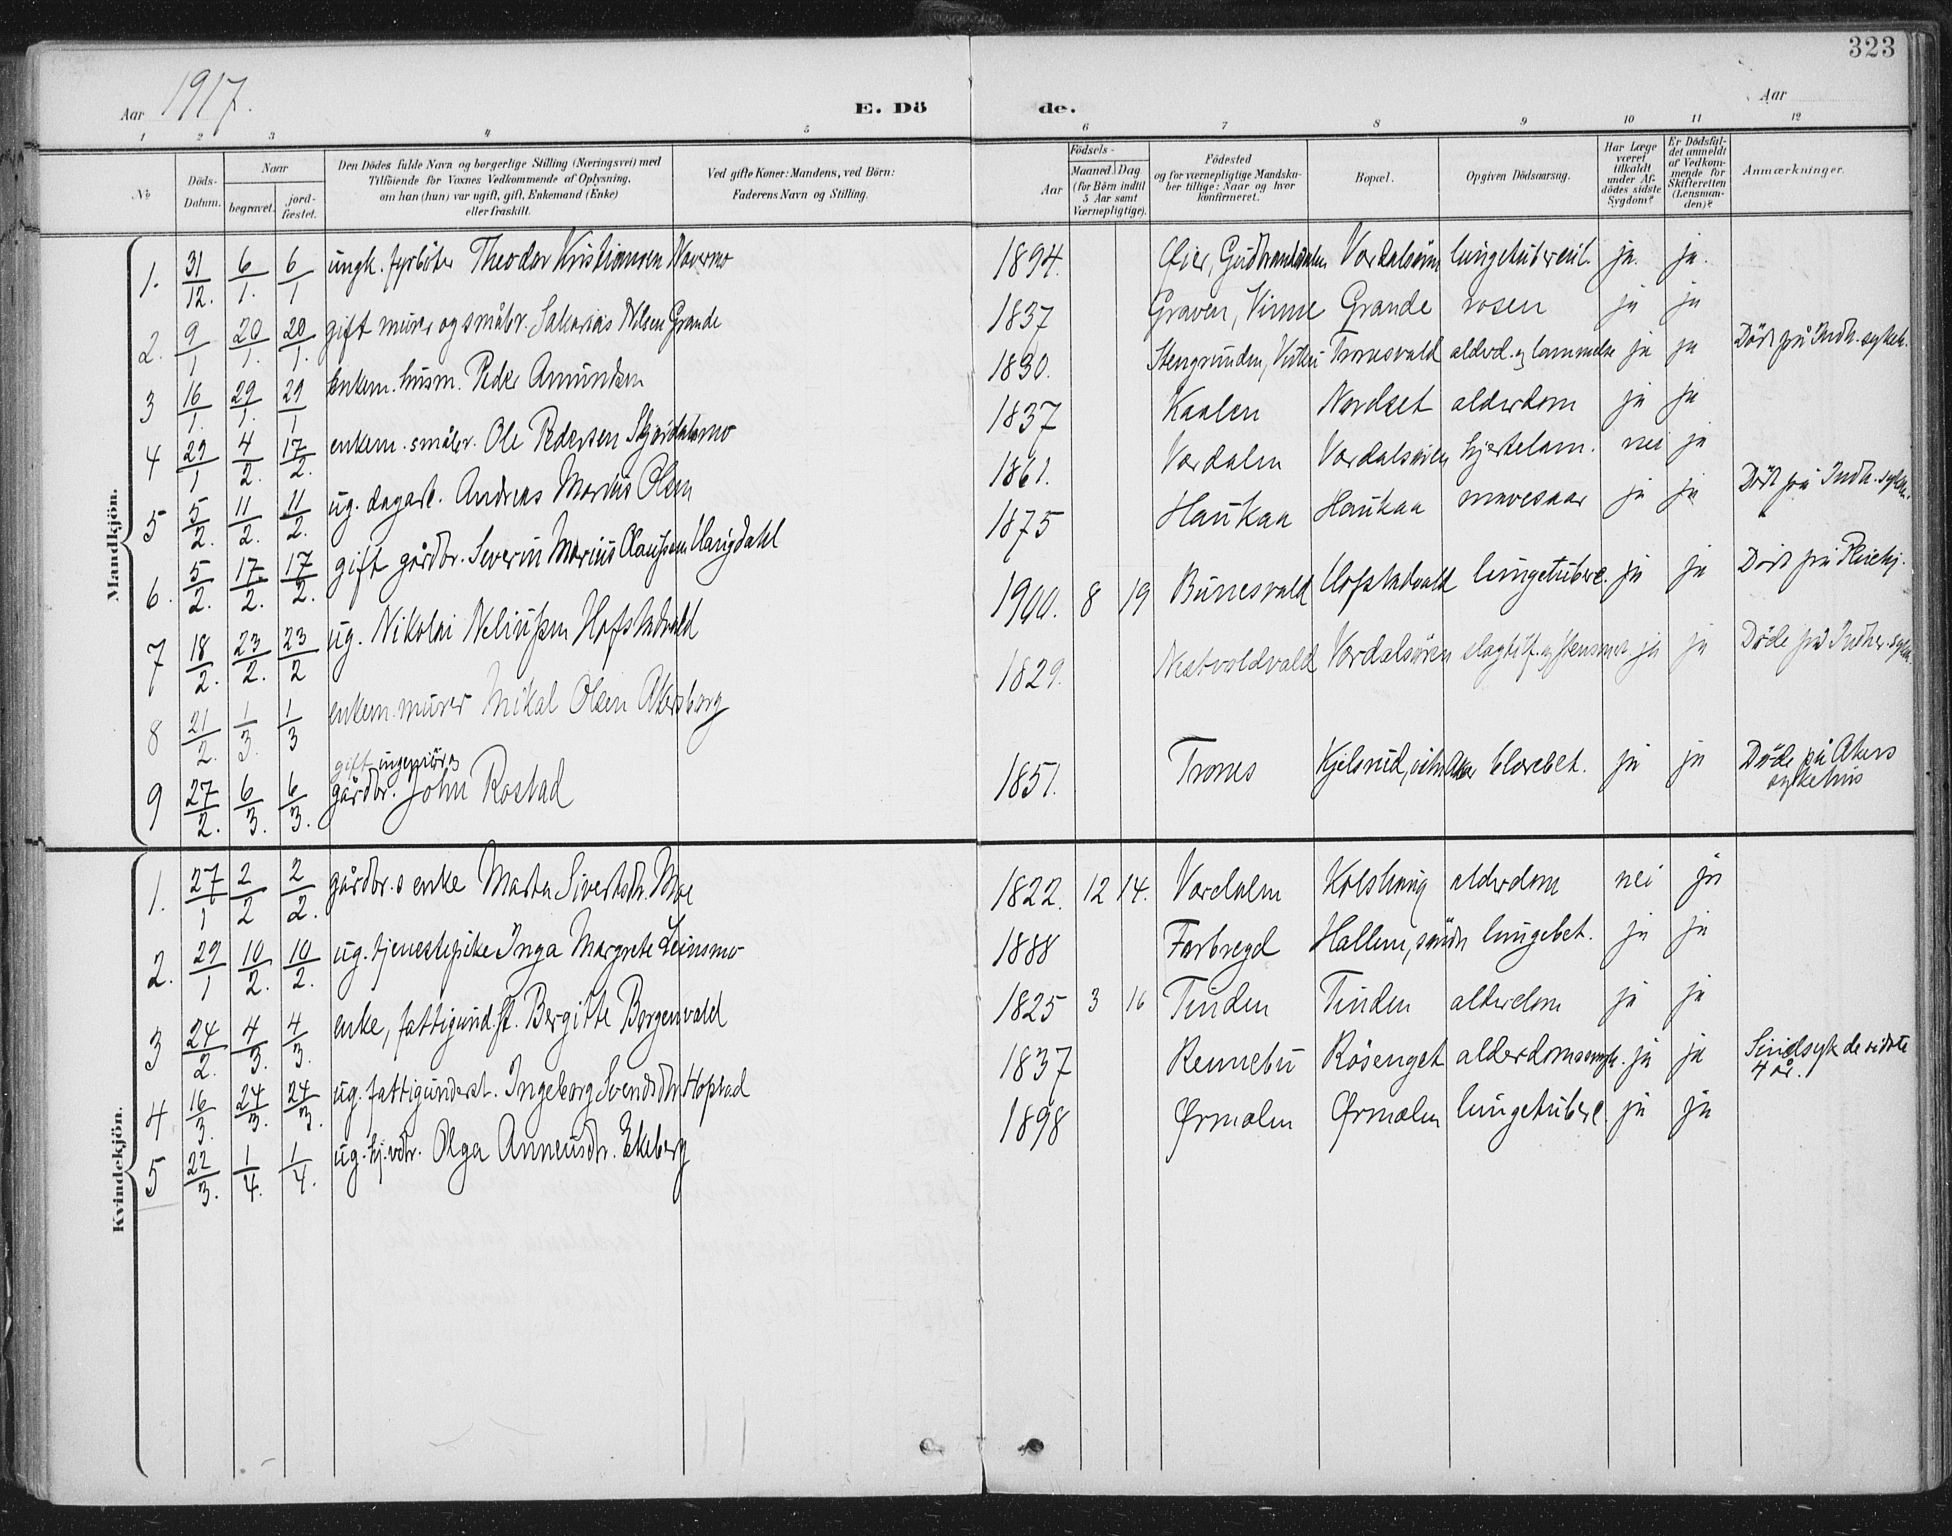 323
Aar 1917.
E. Dö
de.
Aar
1 2 3 4 5 6 7 8 9 10 11 12
No
Döds-Datum.
Naar
begravet.
jord-fæstet.
Den Dödes fulde Navn og borgerlige Stilling (Næringsvei) med
Tilföiende for Voxnes Vedkommende af Oplysning,
om han (hun) var ugift, gift, Enkemand (Enke)
eller fraskilt.
Ved gifte Koner: Mandens, ved Börn:
Faderens Navn og Stilling.
Födsels-
Aar
Maaned Dag
(for Börn indtil
5 Aar samt
Værnepligtige).
Födested
og for værnepligtige Mandska-
ber tillige: Naar og hvor
konfirmeret.
Bopæl.
Opgiven Dödsaarsag.
Har Læge
været
tilkaldt
under Af-
dödes sidste
Sygdom?
Er Dödsfal-
det anmeldt
af Vedkom-
mende for
Skifteretten
(Lensman-
den)?
Anmærkninger.
Mandkjön.
1. 31/12. 6/1. 6/1 ungk. fyrböter Theodor Kristiansen Naverno 1894. Öier, Gudbrandsdalen Værdalsören lungetuberkul. ja. ja.
2. 9/1 20/1. 20/1. gift murer og småbr. Sakarias Nilsen Grande 1837 Graven, Vinne Grande rosen ja ja
3 16/1. 29/1. 29/1 enkem. husm. Peder Amundsen 1830. Stengrunden, Tronesvald alderd. og lammelse ja ja Död på Indh. sykeh.
4 29/1 4/2. 17/2. enkem. småbr. Ole Pedersen Skjördalsmo 1837 Kaalen Nordset alderdom ja ja
5 5/2. 11/2. 11/2. ug. dagarb. Andreas Martin Olsen 1861. Værdalen Værdalsören hjertelam. nei ja
6. 5/2. 17/2. 17/2. gift gårdbr. Severin Marius Olaussen Haugdahl 1875 Haukaa Haukaa mavesaar ja ja Död på Indh. sykeh.
7 18/2. 23/2. 23/2 ug. Nikolai Neliussen Hofstadvald 1900. 8 19 Bunesvald Hofstadvald lungetuberc. ja ja Död på
8 21/2. 1/3. 1/3 enkem. murer Mikal Olsen Akersborg 1829. Nestvoldvald Værdalsören slagtilf. og ja ja Döde på Indher. sykeh.
gift ingeniör og
9 27/2. 6/3. 6/3. gårdbr. John Rostad 1851. Trones Kjelsrud, Aker blærebet. ja ja Döde på Akers
sykehus
Kvindekjön.
1. 27/1 2/2 2/2. gårdbr.s enke Marta Sivertsdr. Moe 1822. 12 14. Værdalen Kolshaug alderdom nei ja
2. 29/1 10/2. 10/2. ug. tjenestepike Inga Margrete Leinsmo 1888 Forbregd Hallem, söndre lungebet. ja ja
3 24/2. 4/3. 4/3. enke, fattigund.st. Bergitte Borgenvald 1825 3 16 Tinden Tinden alderdom ja ja
4 16/3. 24/3. 24/3. ug. fattigunderst. Ingeborg Svendsdtr. Hofstad 1837 Rennebu Rösenget alderdomssvagh. ja ja Sindsyk de sidste
4 år.
5 22/3. 1/4. 1/4. ug. hj.vdr. Olga Anneusdr. Ekeberg 1898 Ørmelen Ørmelen lungetuberc. ja ja